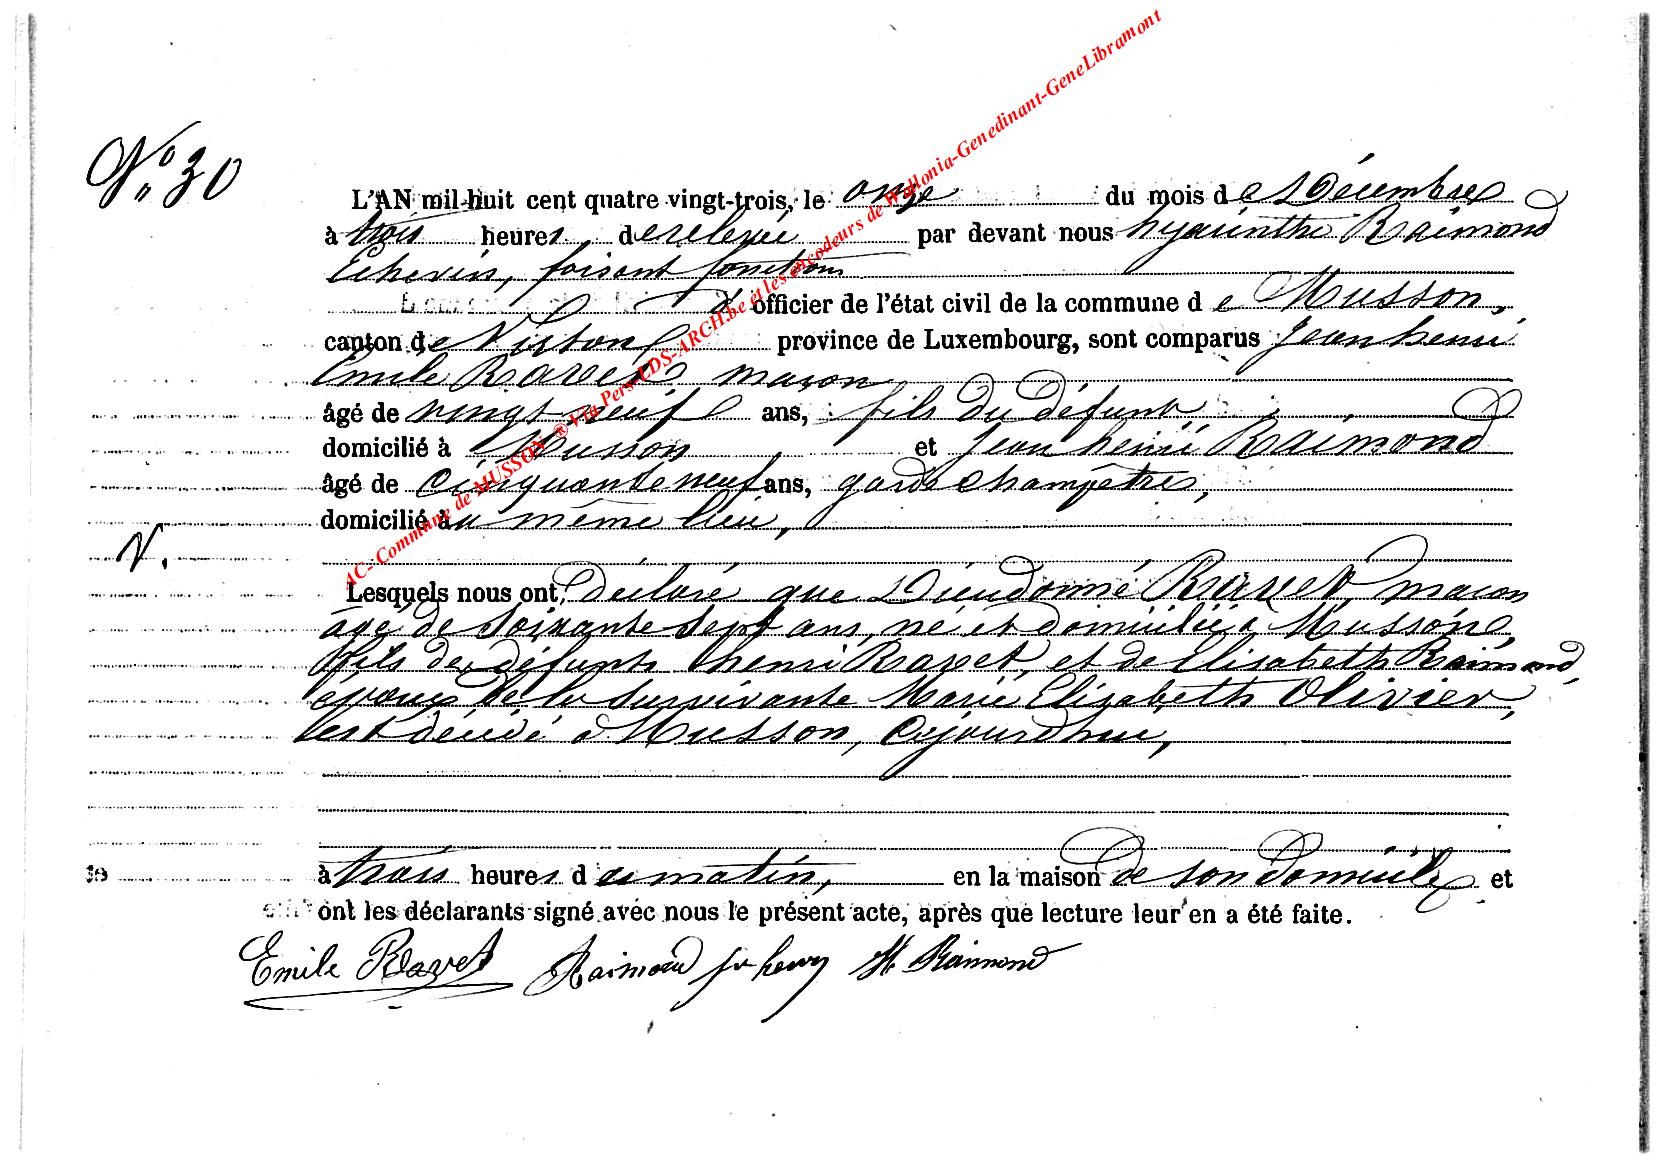 N° 30
L'AN mil huit cent quatre vingt-trois, le onze du mois de Décembre
à trois heures, de relevée par devant nous hyacinthe Raimond
Echevin, faisant fonctions
d' officier de l'état civil de la commune de Musson,
canton de Virton province de Luxembourg, sont comparus Jean henri
Emile Ravet, maçon
âgé de vingt neuf ans, fils du défunt
domicilié à Musson et Jean henri Raimond
âgé de cinquante neuf ans, garde champêtre,
domicilié au même lieu,
V.
Lesquels nous ont déclaré que Dieudonné Ravet, maçon
âgé de soixante sept ans, né et domicilié à Musson,
fils des défunts henri Ravet, et de Elisabeth Raimond,
époux de la survivante Marie Elizabeth Olivier,
est décédé à Musson, cejourdhui,
à trois heures du matin, en la maison de son domicile et
ont les déclarants signé avec nous le présent acte, après que lecture leur en a été faite.
Emile Ravet Raimond jn henry H Raimond
AC- Commune de MUSSON ®Via Pers-LDS-ARCH.be et les encodeurs de Wallonia-Genedinant-GeneLibramont